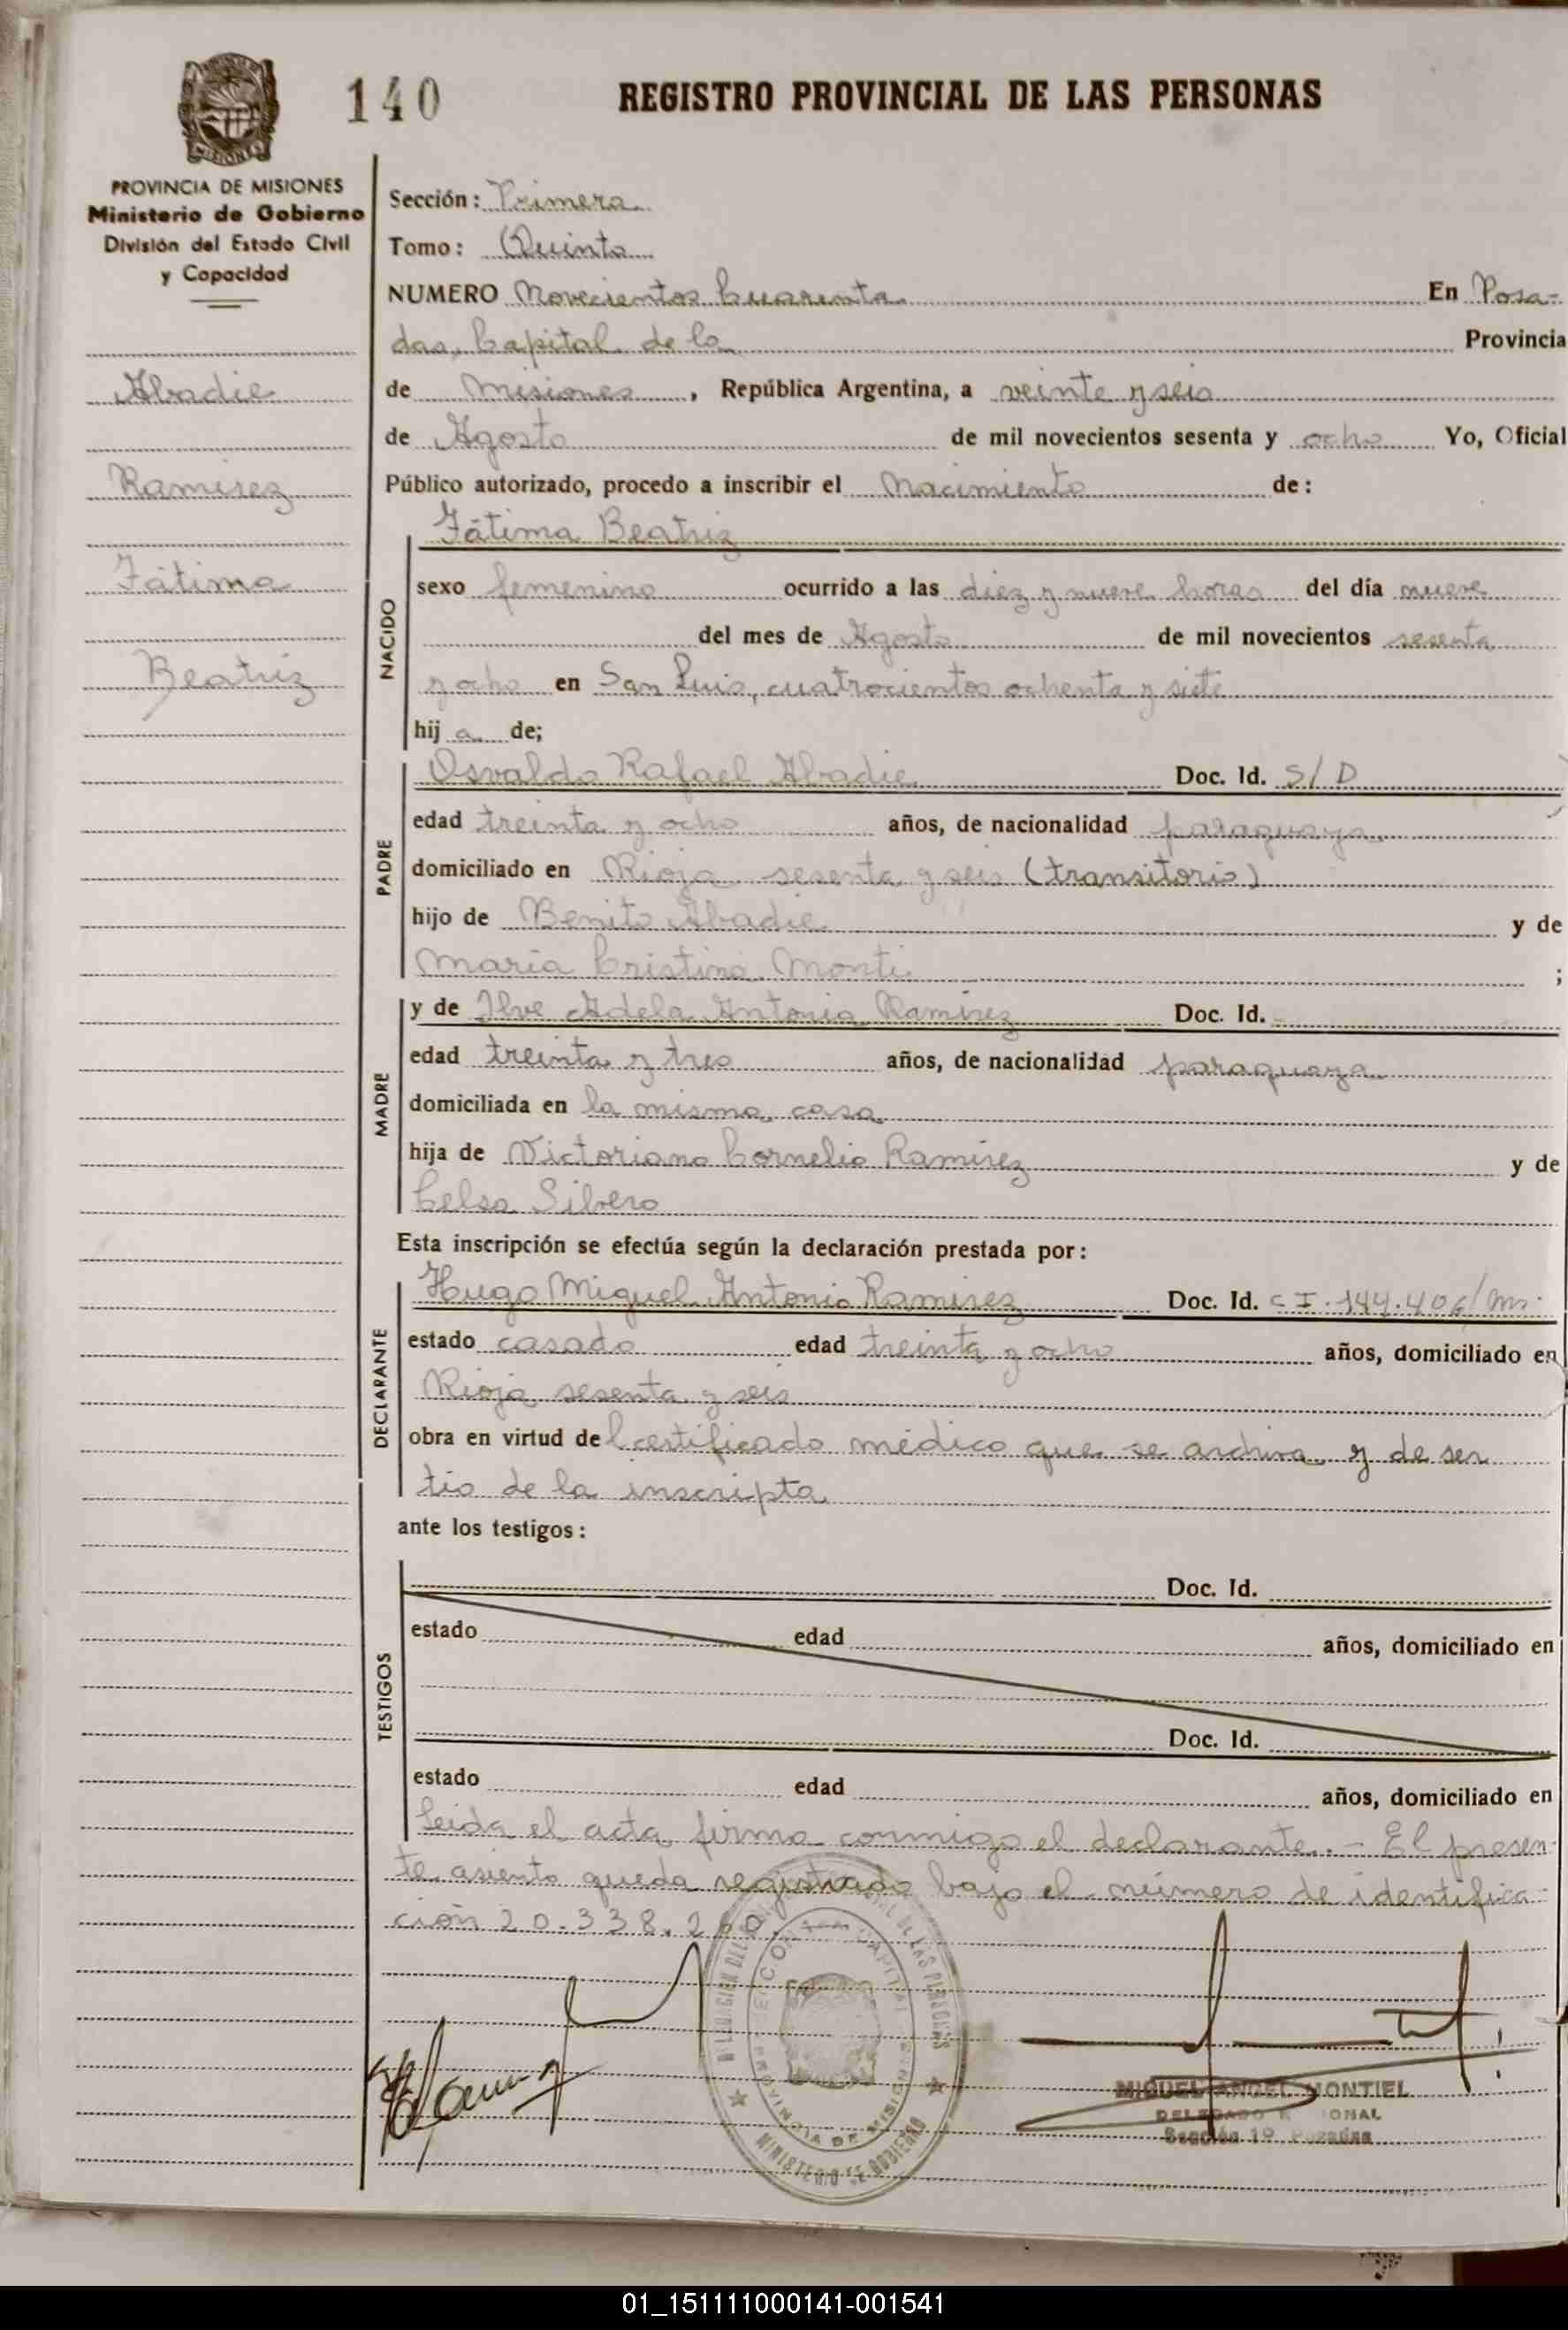 140
REGISTRO PROVINCIAL DE LAS PERSONAS
MISIONES
PROVINCIA DE MISIONES
Ministerio de Gobierno
División del Estado Civil
y Capacidad
Abadie
Ramirez
Fátima
Beatriz
Sección: Primera
Tomo: Quinto
NUMERO Novecientos Cuarenta En Posa-
das, Capital de la Provincia
de Misiones, República Argentina, a veinte y seis
de Agosto de mil novecientos sesenta y ocho Yo, Oficial
Público autorizado, procedo a inscribir el Nacimiento de:
NACIDO
Fátima Beatriz
sexo femenino ocurrido a las diez y nueve horas del día nueve
del mes de Agosto de mil novecientos sesenta
y ocho en San Luis, cuatrocientos ochenta y siete
hija de;
PADRE
Osvaldo Rafael Abadie Doc. Id. S/D
edad treinta y ocho años, de nacionalidad paraguaya
domiciliado en Rioja sesenta y seis (transitorio)
hijo de Benito Abadie y de
María Cristina Monti ;
MADRE
y de Ilve Adela Antonia Ramirez Doc. Id.
edad treinta y tres años, de nacionalidad paraguaya
domiciliada en la misma casa
hija de Victoriano Cornelio Ramirez y de
Celsa Silvero
Esta inscripción se efectúa según la declaración prestada por:
DECLARANTE
Hugo Miguel Antonio Ramirez Doc. Id. C I. 144.406/Ms.
estado casado edad treinta y ocho años, domiciliado en
Rioja sesenta y seis
obra en virtud del certificado médico que se archiva y de ser
tio de la inscripta
ante los testigos:
TESTIGOS
Doc. Id.
estado edad años, domiciliado en
Doc. Id.
estado edad años, domiciliado en
Leida el acta, firma conmigo el declarante.- El presen-
te asiento queda registrado bajo el número de identifica-
ción 20.338.260.
CAPITAL
PROVINCIA DE MISIONES
MINISTERIO DE GOBIERNO
MIGUEL ANGEL MONTIEL
Sección 1º Posadas
01_151111000141-001541